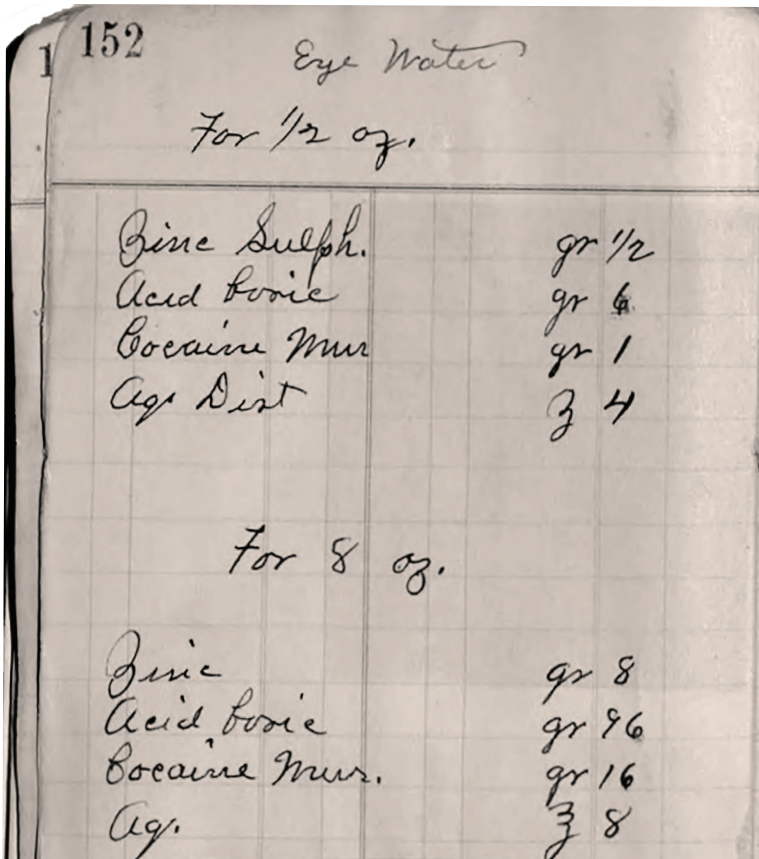 152
Eye Water
For 1/2 oz.
Zinc Sulph. gr 1/2
Acid boric gr 6
Cocaine Mur gr 1
Aq. Dist ʒ 4
For 8 oz.
Zinc gr 8
Acid boric gr 96
Cocaine Mur. gr 16
Aq. ℥ 8